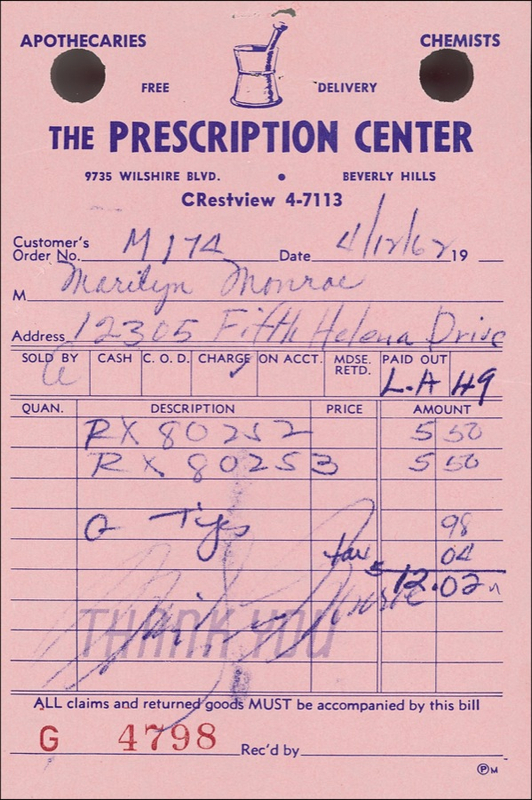 APOTHECARIES CHEMISTS
FREE DELIVERY
THE PRESCRIPTION CENTER
9735 WILSHIRE BLVD. • BEVERLY HILLS
CRestview 4-7113
Customer's Order No. M174 Date 4/12/62 19
M Marilyn Monroe
Address 12305 Fifth Helena Drive
SOLD BY CASH C. O. D. CHARGE ON ACCT. MDSE. RETD. PAID OUT
L.A 49
QUAN. DESCRIPTION PRICE AMOUNT
RX 80252 5 50
RX 80253 5 50
98
tax 04
12.02
THANK YOU
ALL claims and returned goods MUST be accompanied by this bill
G 4798 Rec'd by
PM